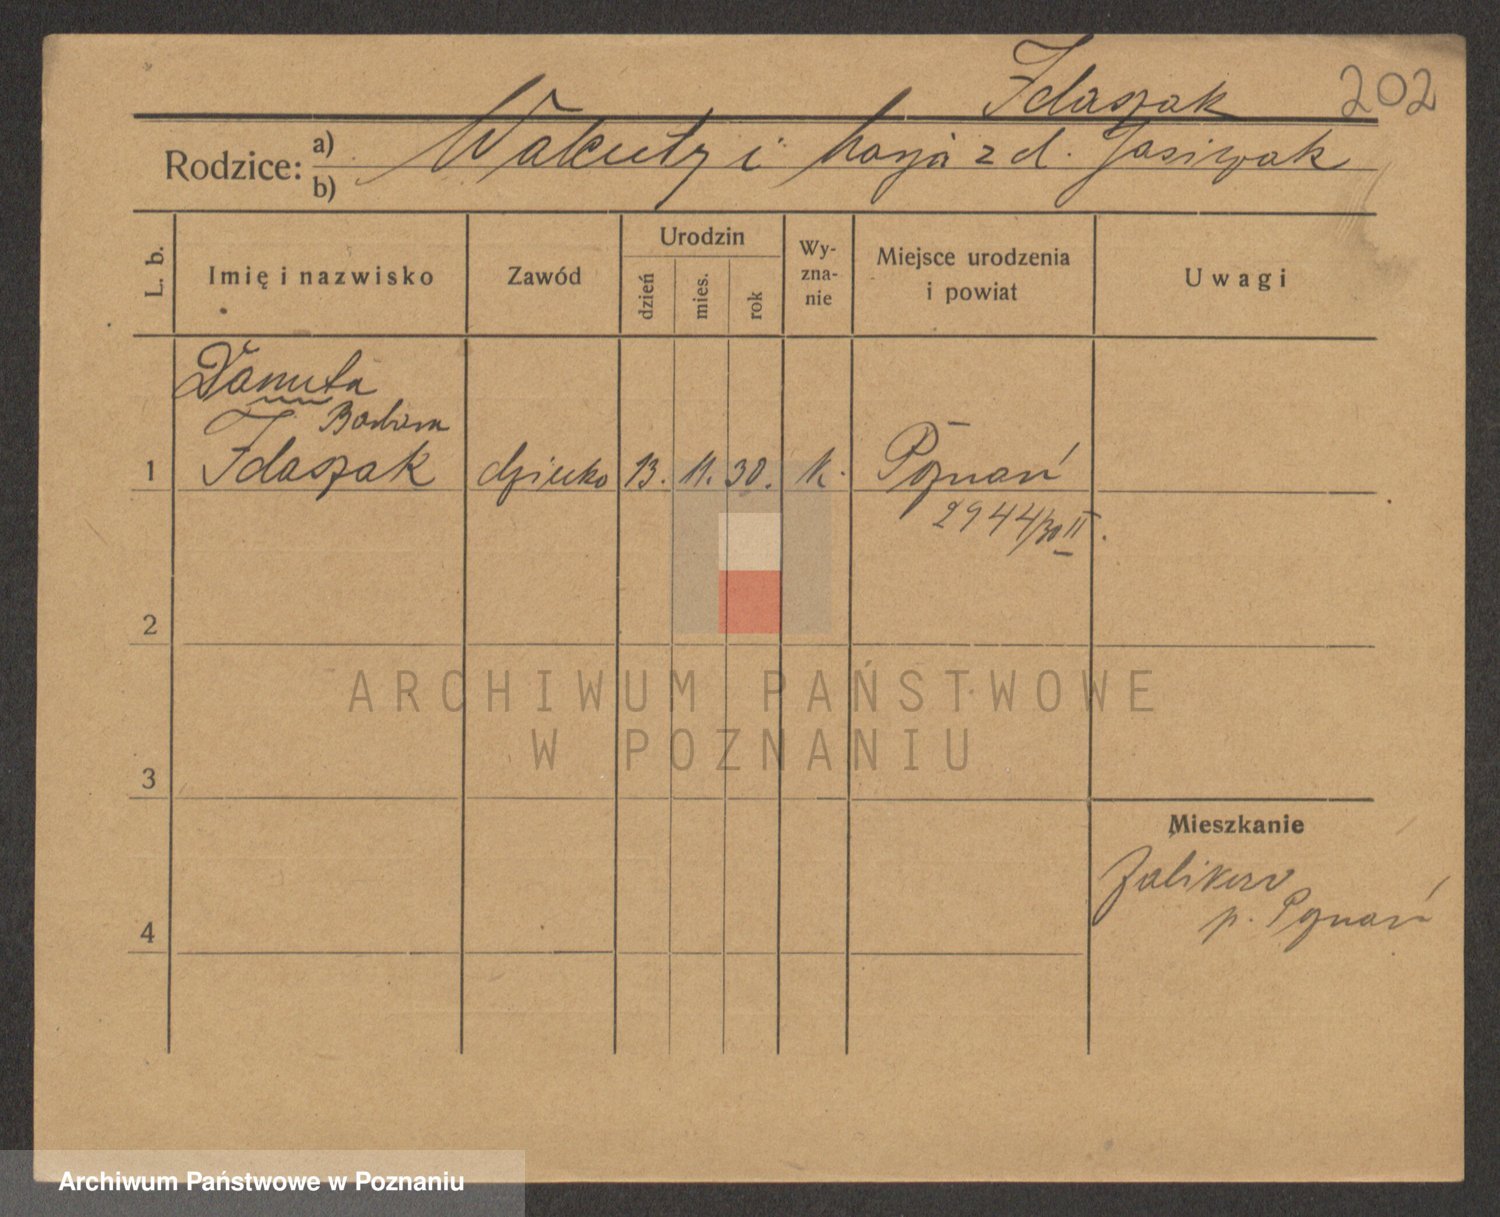 Idaszak 202
Rodzice: a) Walenty i Marja z d. Jasi
b)
L. b. Imię i nazwisko Zawód Urodzin dzień mies. rok Wy-zna-nie Miejsce urodzenia i powiat Uwagi
Danuta
Barbara
1 Idaszak dziecko 13. 11. 30. k. Poznań
2944/30 II
2
ARCHIWUM PAŃSTWOWE
W POZNANIU
3
Mieszkanie
Żabikowo
4 p. Poznań
Archiwum Państwowe w Poznaniu